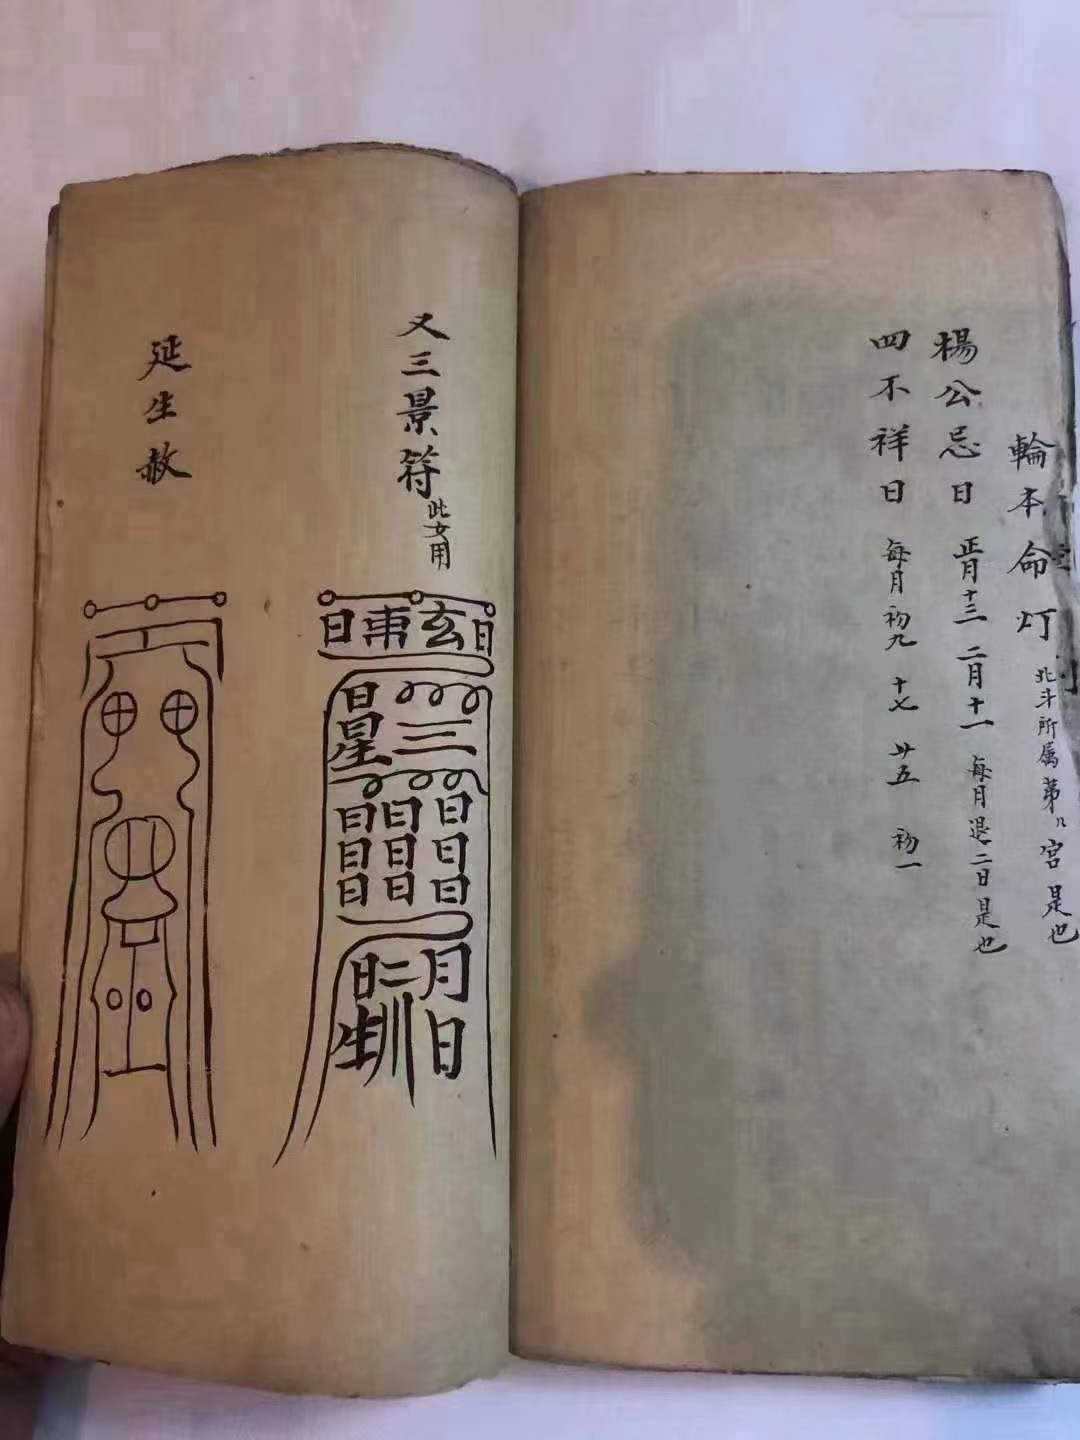 輪本命灯 北斗所属第八宮是也
楊公忌日 正月十三 二月十一 每月退二日是也
四不祥日 每月初九 十七 廿五 初一
又三景符 此女用
日東玄日
日星三
日日日
日日日
日日日
日二月
生川日
延生赦